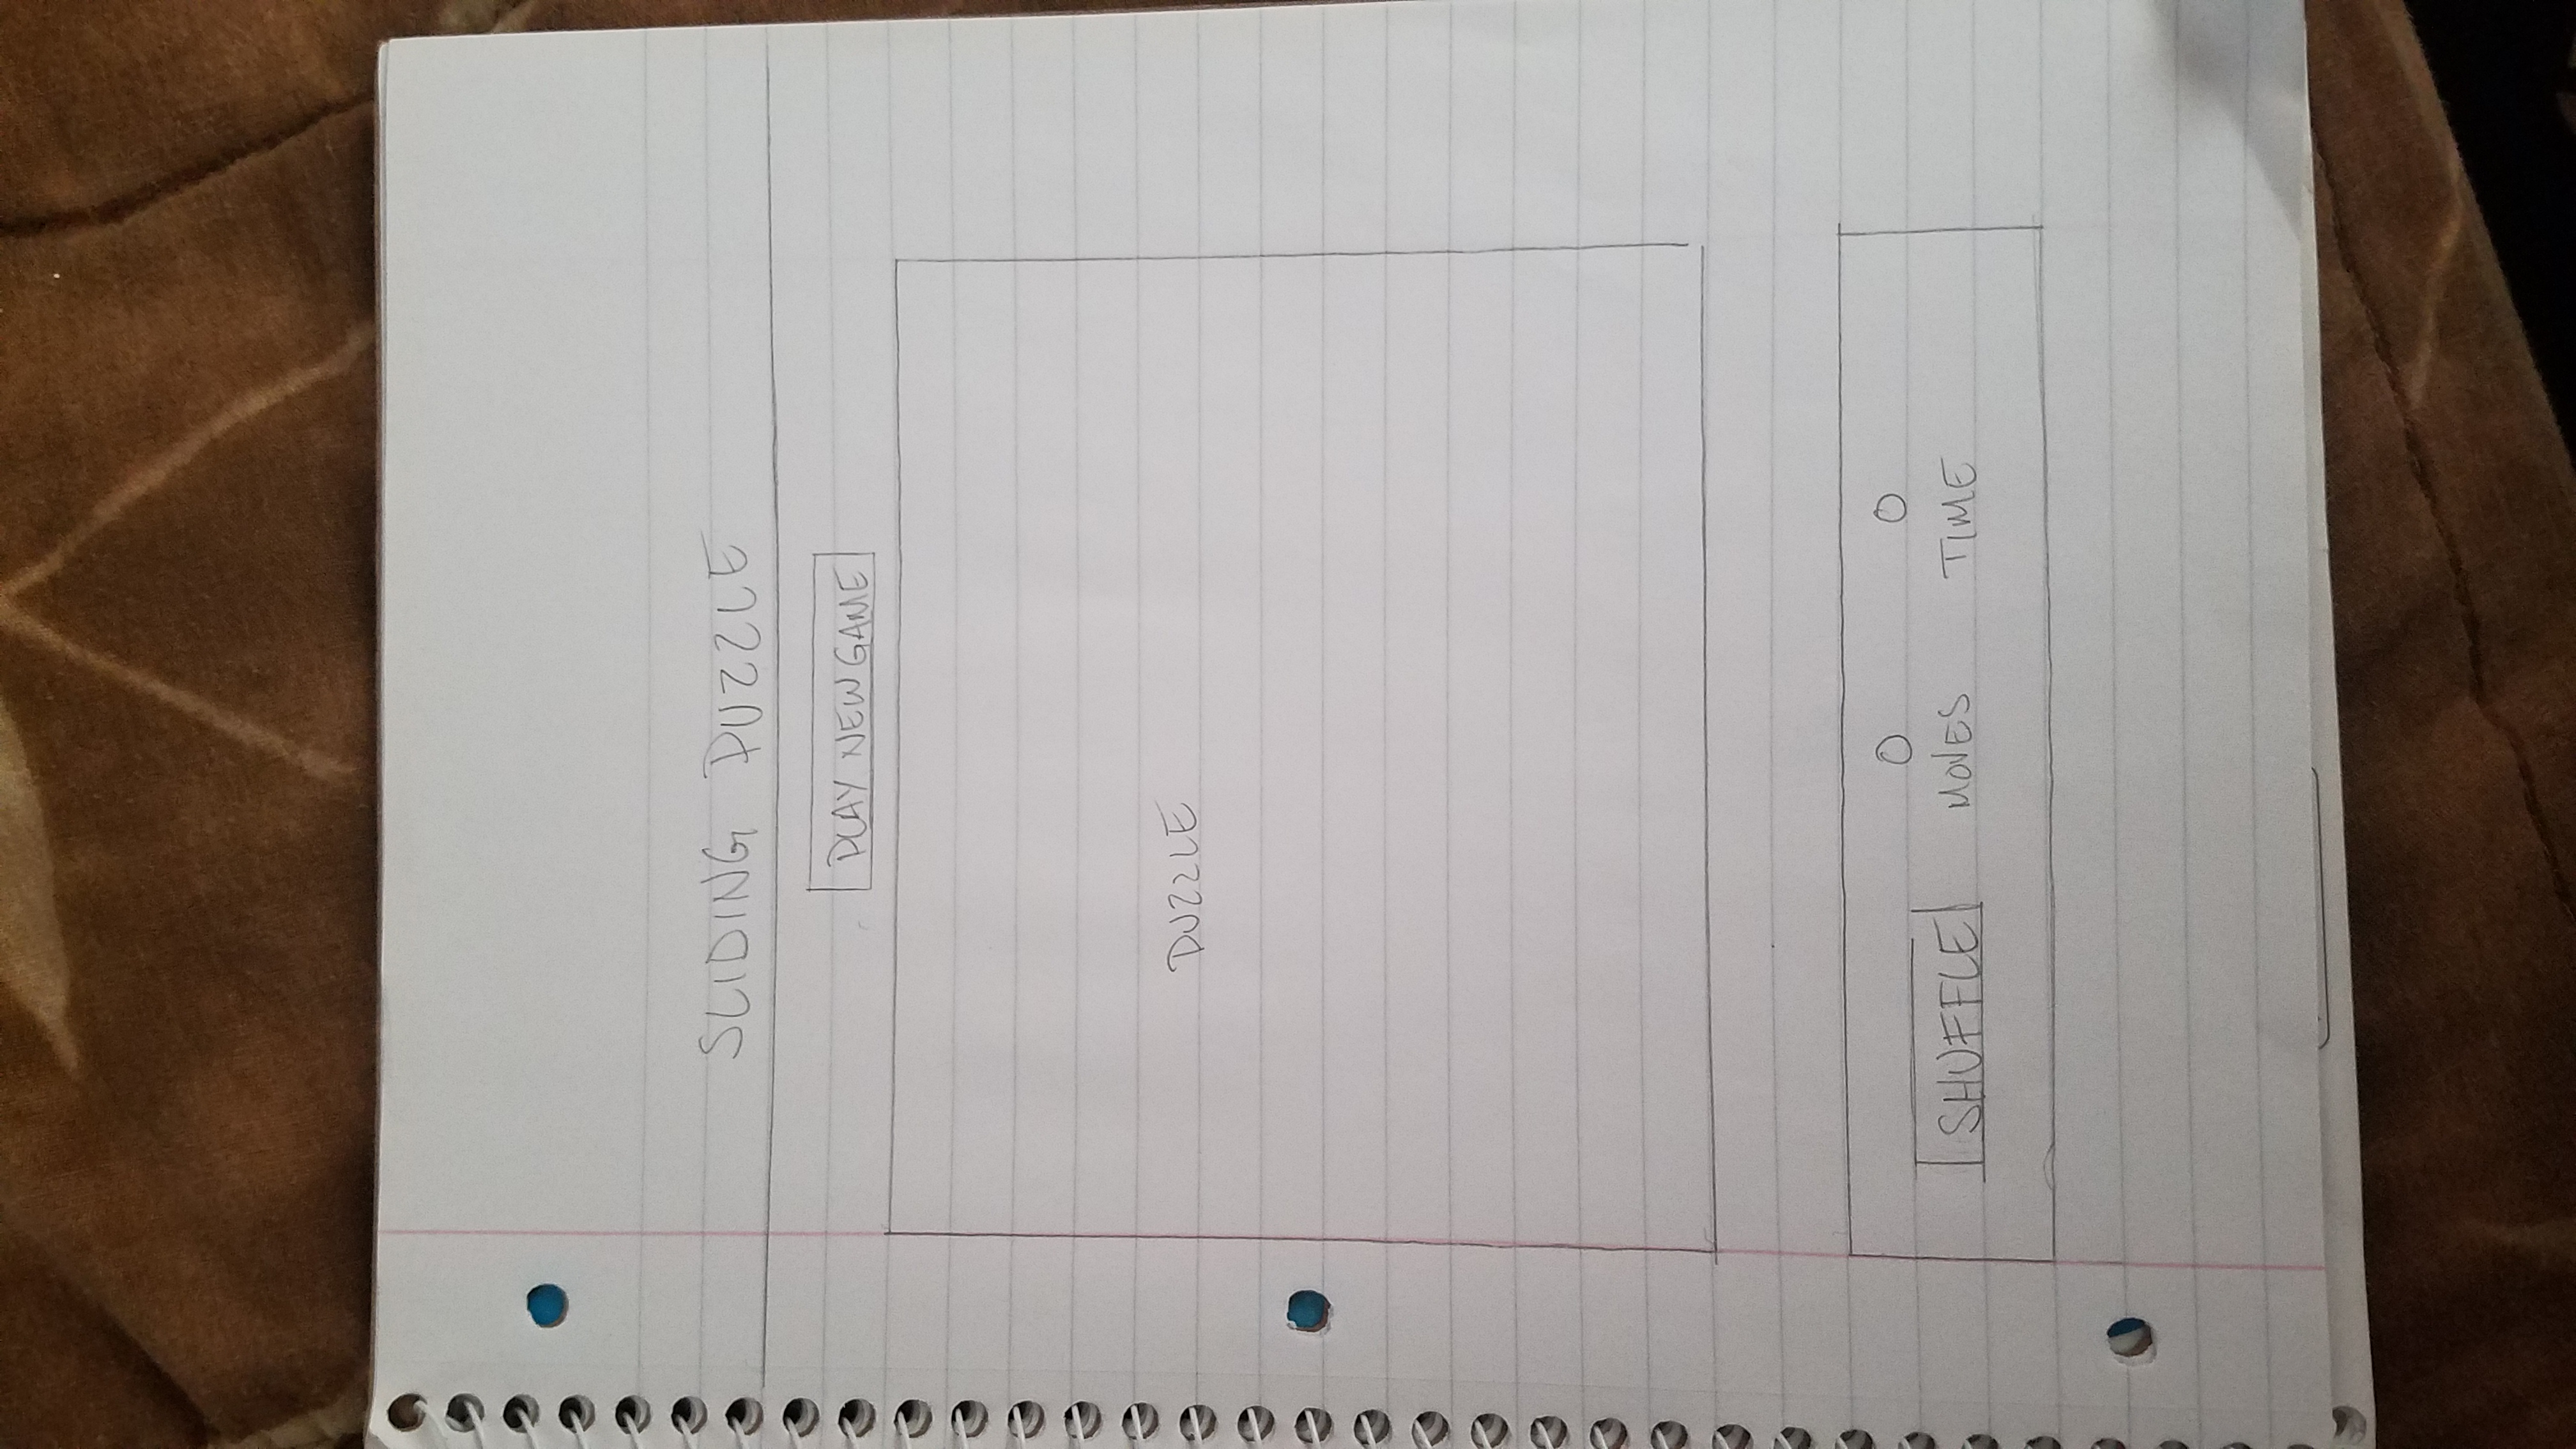 SLIDING PUZZLE
PLAY NEW GAME
PUZZLE
0 0
SHUFFLE MOVES TIME